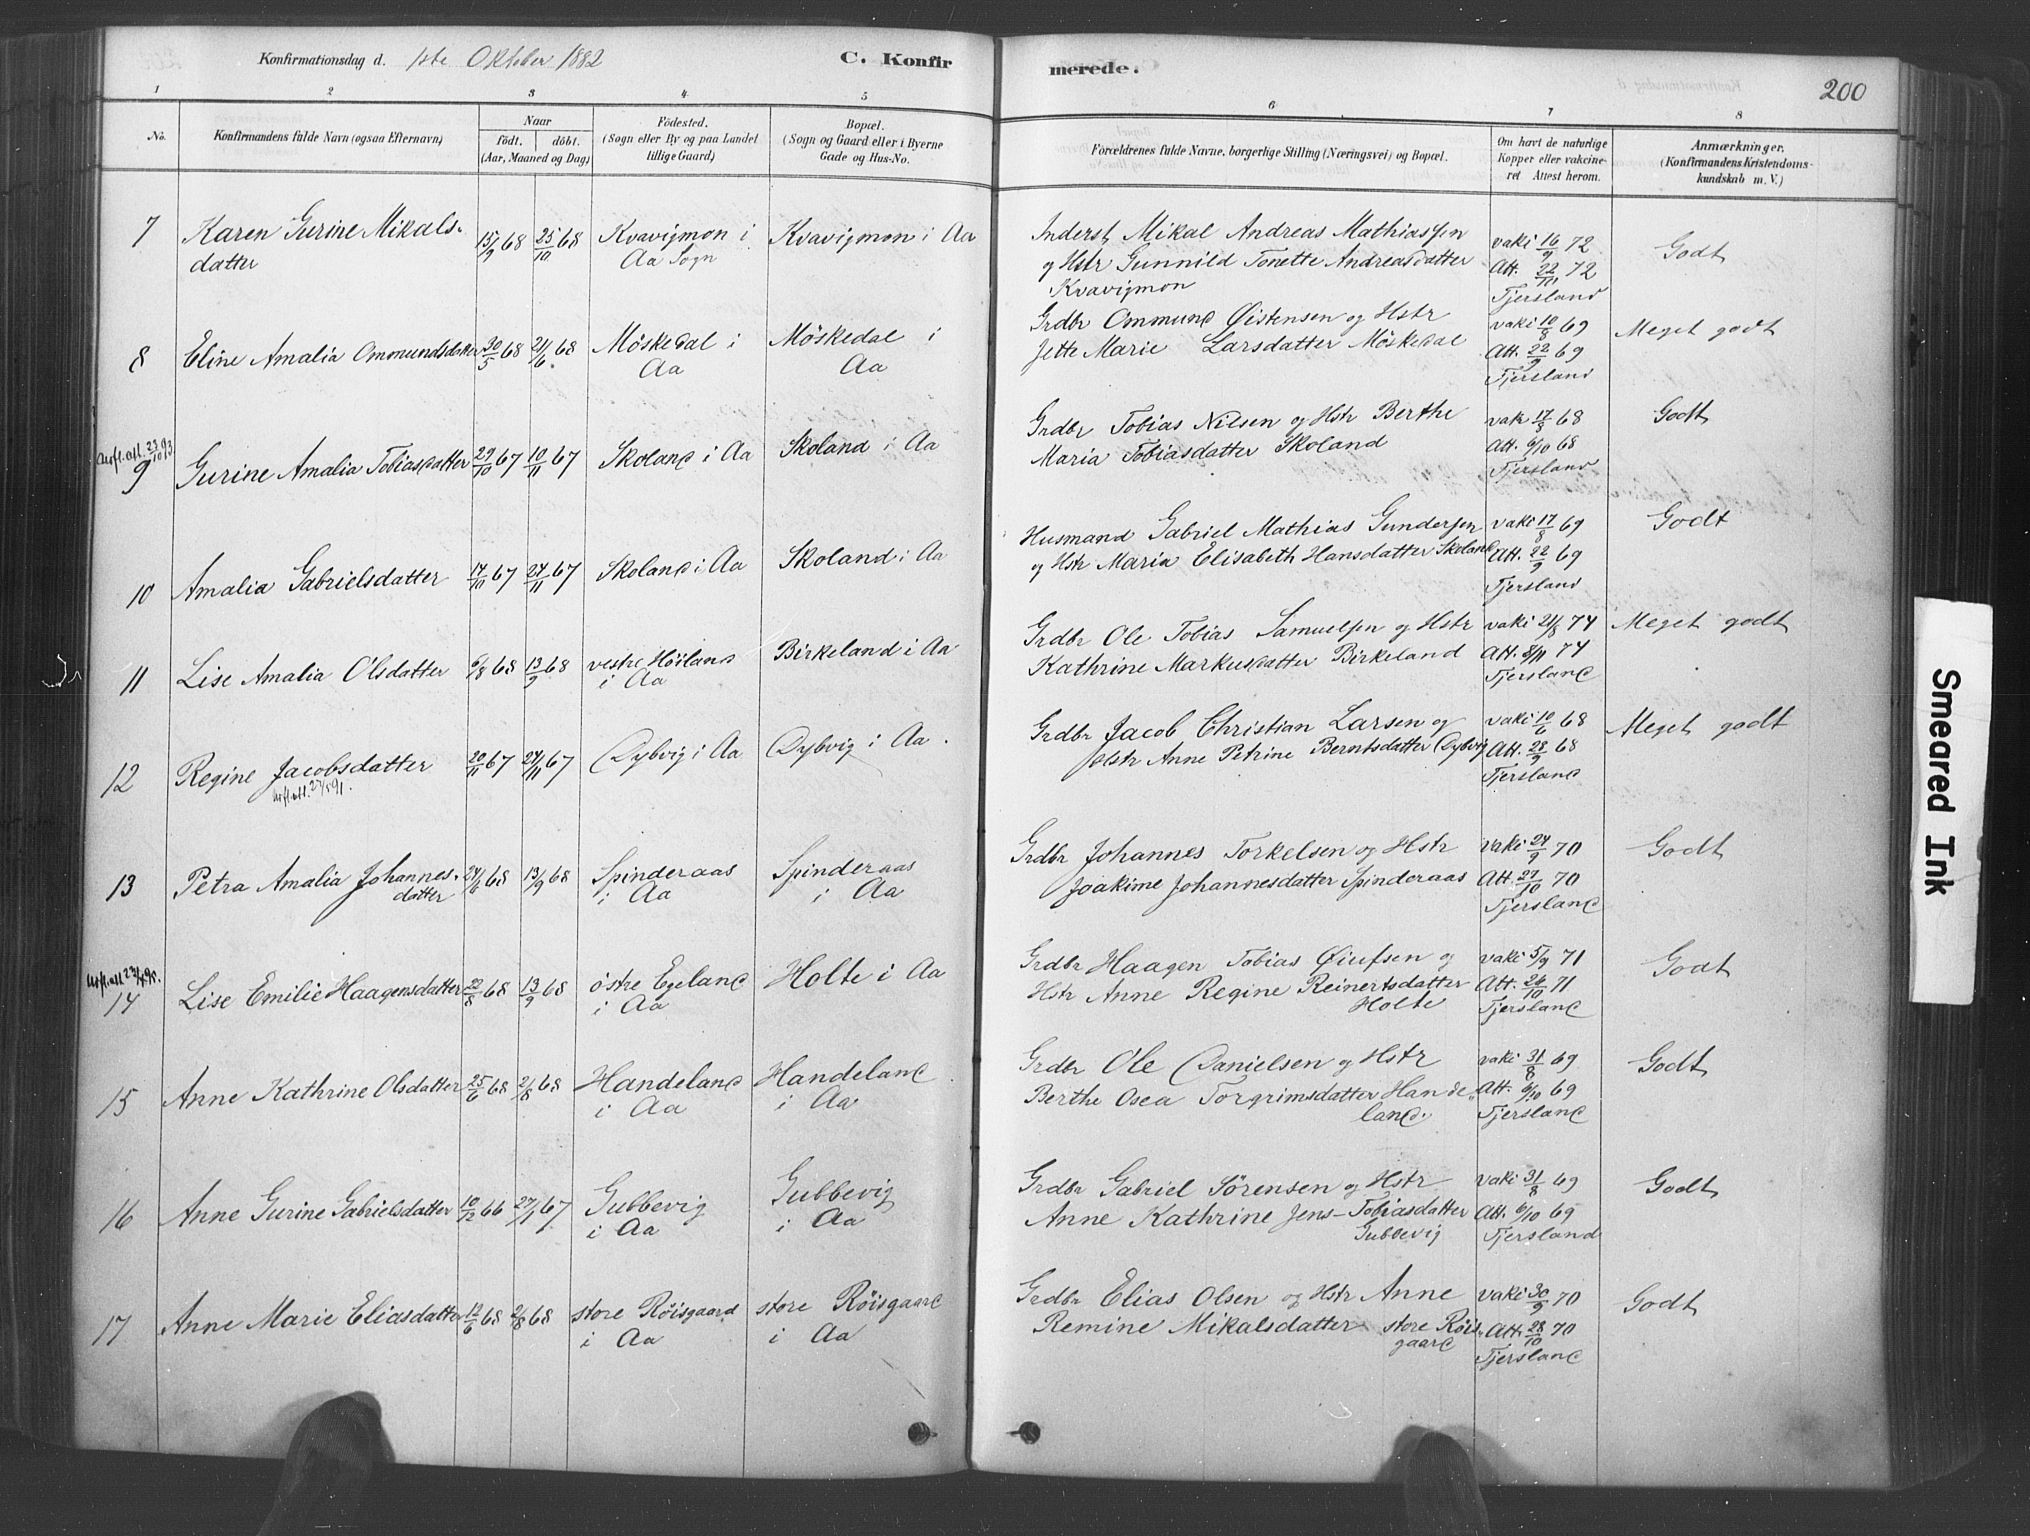 Konfirmationsdag d. 1ste Oktober 1882
C. Konfirmerede.
200
1 2 3 4 5 6 7 8
No.
Konfirmandens fulde Navn (ogsaa Efternavn)
Naar
födt. döbt.
(Aar, Maaned og Dag)
Födested.
(Sogn eller By og paa Landet
tillige Gaard)
Bopæl.
(Sogn og Gaard eller i Byerne
Gade og Hus-No.
Forældrenes fulde Navne, borgerlige Stilling (Næringsvei) og Bopæl.
Om havt de naturlige
Kopper eller vakcine-
ret Attest herom.
Anmærkninger.
(Konfirmandens Kristendoms-
kundskab m. V.)
7 Karen Gurine Mikals- 15/9 68 25/10 68 Kvavigmon i Kvavigmon i Aa Inderst Mikal Andreas Mathiassen vaki 16/9 72 Godt
datter Aa Sogn og Hstr Gunnild Tonette Andreasdatter Att. 22/10 72
Kvavigmon Tjersland
8 Eline Amalia Ommundsdatter 30/5 68 21/6 68 Möskedal i Möskedal i Grdbr Ommund Øistensen og Hstr vaki 10/8 69 Meget godt
Aa Aa Jette Marie Larsdatter Möskedal Att. 22/9 69
Tjersland
9 Gurine Amalia Tobiasdatter 29/10 67 10/11 67 Skoland i Aa Skoland i Aa Grdbr Tobias Nilsen og Hstr Berthe vak 17/8 68 Godt
Maria Tobiasdatter Skoland Att. 6/10 68
Tjersland
10 Amalia Gabrielsdatter 14/10 67 24/11 67 Skoland i Aa Skoland i Aa Husmand Gabriel Mathias Gundersen vaki 17/8 69 Godt
og Hstr Maria Elisabeth Hansdatter Skoland Att. 22/9 69
Tjersland
11 Lise Amalia Olsdatter 6/8 68 13/9 68 vestre Höiland Birkeland i Aa Grdbr Ole Tobias Samuelsen og Hstr vaki 21/8 74 Meget godt
i Aa Kathrine Markusdatter Birkeland Att. 8/11 74
Tjersland
12 Regine Jacobsdatter 20/11 67 24/11 67 Dybvig i Aa Dybvig i Aa. Grdbr Jacob Christian Larsen og vaki 10/6 68 Meget godt
Hstr Anne Petrine Berntsdatter Dybvig Att. 28/9 68
Tjersland
13 Petra Amalia Johannes- 24/6 68 13/9 68 Spinderaas Spinderaas Grdbr Johannes Torkelsen og Hstr vaki 24/9 70 Godt
datter i Aa i Aa Joakime Johannesdatter Spinderaas Att. 27/10 70
Tjersland
14 Lise Emilie Haagensdatter 22/8 68 13/9 68 östre Egeland Holte i Aa Grdbr Haagen Tobias Øiufsen og vaki 5/9 71 Godt
i Aa Hstr Anne Regine Reinertsdatter Att. 26/10 71
Holte Tjersland
15 Anne Kathrine Olsdatter 25/6 68 2/8 68 Handeland Handeland Grdbr Ole Danielsen og Hstr vaki 31/8 69 Godt
i Aa i Aa Berthe Osea Torgrimsdatter Hande- Att. 6/10 69
land. Tjersland
16 Anne Gurine Gabrielsdatter 10/12 66 27/1 67 Gubbevig Gubbevig Grdbr Gabriel Sörensen og Hstr vaki 31/8 69 Godt
i Aa i Aa Anne Kathrine Jens-Tobiasdatter Att. 6/10 69
Gubbevig Tjersland
17 Anne Marie Eliasdatter 12/6 68 2/8 68 store Röisgaard store Röisgaard Grdbr Elias Olsen og Hstr Anne vaki 30/9 70 Godt
i Aa i Aa Remine Mikalsdatter store Röis- Att. 28/10 70
gaard Tjersland
Smeared Ink